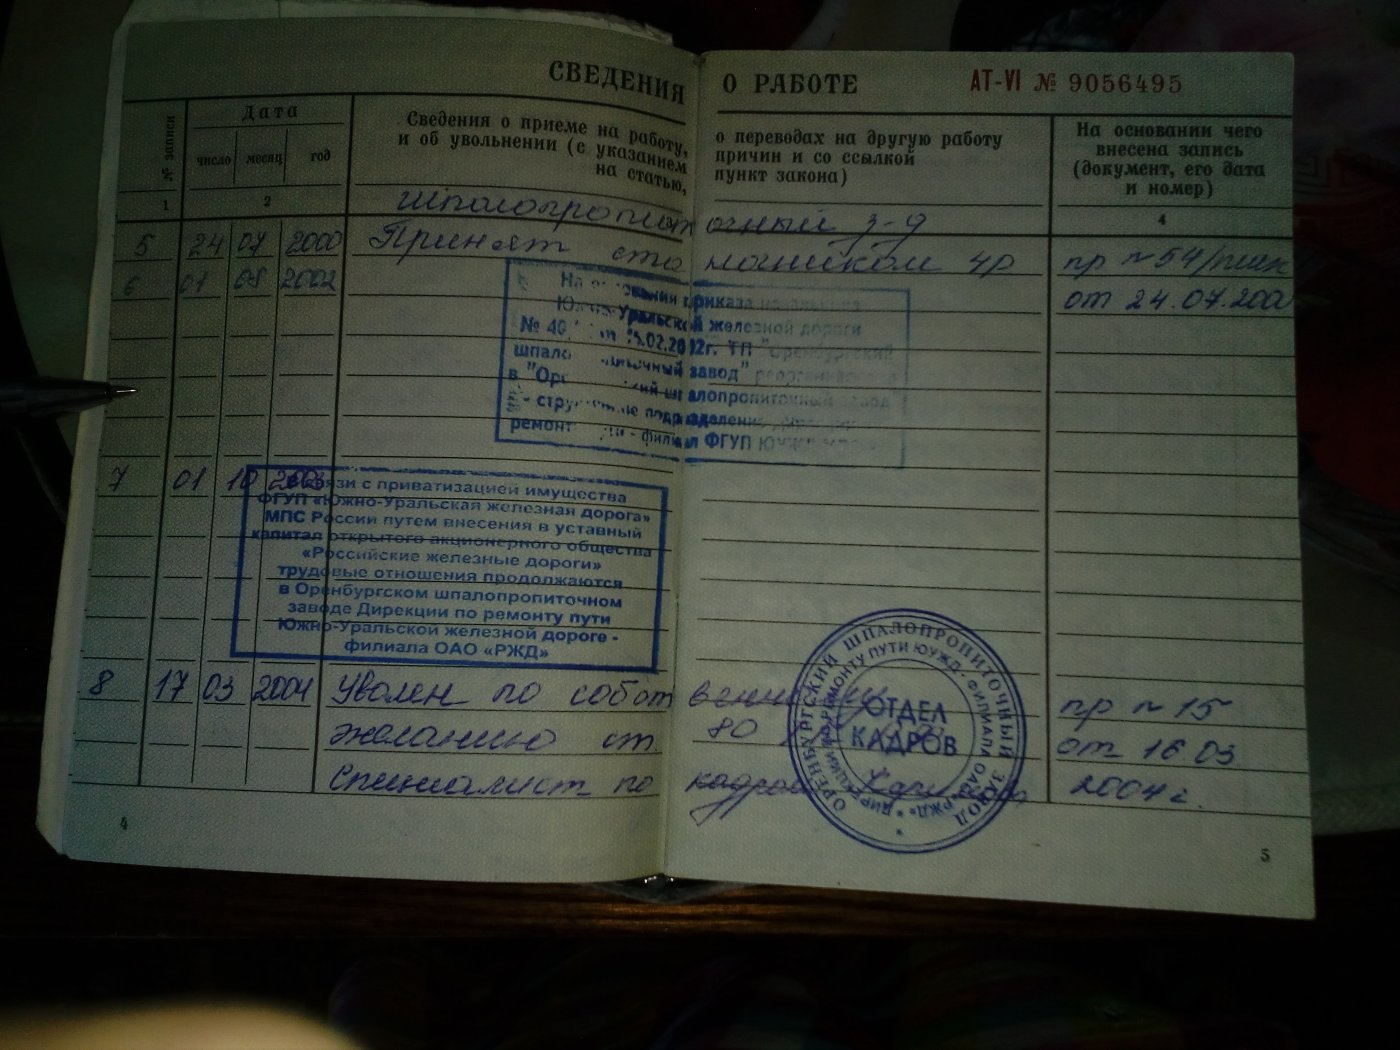 СВЕДЕНИЯ О РАБОТЕ АТ-VI № 9056495
№ записи
Дата
число месяц год
Сведения о приеме на работу, о переводах на другую работу
и об увольнении (с указанием причин и со ссылкой
на статью, пункт закона)
На основании чего
внесена запись
(документ, его дата
и номер)
1 2 4
Шпалопропиточный з-д
5 24 07 2000 Принят станочником 4р пр №54
от 24.07.200
6 01 08 2002
На основании приказа начальника
Южно-Уральской железной дороги
№ 40 02.2002г. ГП "Оренбургский
шпалопропиточный завод" реорганизовано
в "Оренбургский шпалопропиточный завод
- структурное подразделение
ремонту пути - филиал ФГУП ЮУЖД
7 01 10 2003
связи с приватизацией имущества
ФГУП «Южно-Уральская железная дорога»
МПС России путем внесения в уставный
капитал открытого акционерного общества
«Российские железные дороги»
трудовые отношения продолжаются
в Оренбургском шпалопропиточном
заводе Дирекции по ремонту пути
Южно-Уральской железной дороге -
филиала ОАО «РЖД»
8 17 03 2004 Уволен по собственному пр №15
желанию ст. 80 от 16 03
Специалист по кадрам 2004 г.
ОРЕНБУРГСКИЙ ШПАЛОПРОПИТОЧНЫЙ ЗАВОД
ДИРЕКЦИИ ПО РЕМОНТУ ПУТИ ЮУЖД - ФИЛИАЛА ОАО «РЖД»
ОТДЕЛ
КАДРОВ
4 5